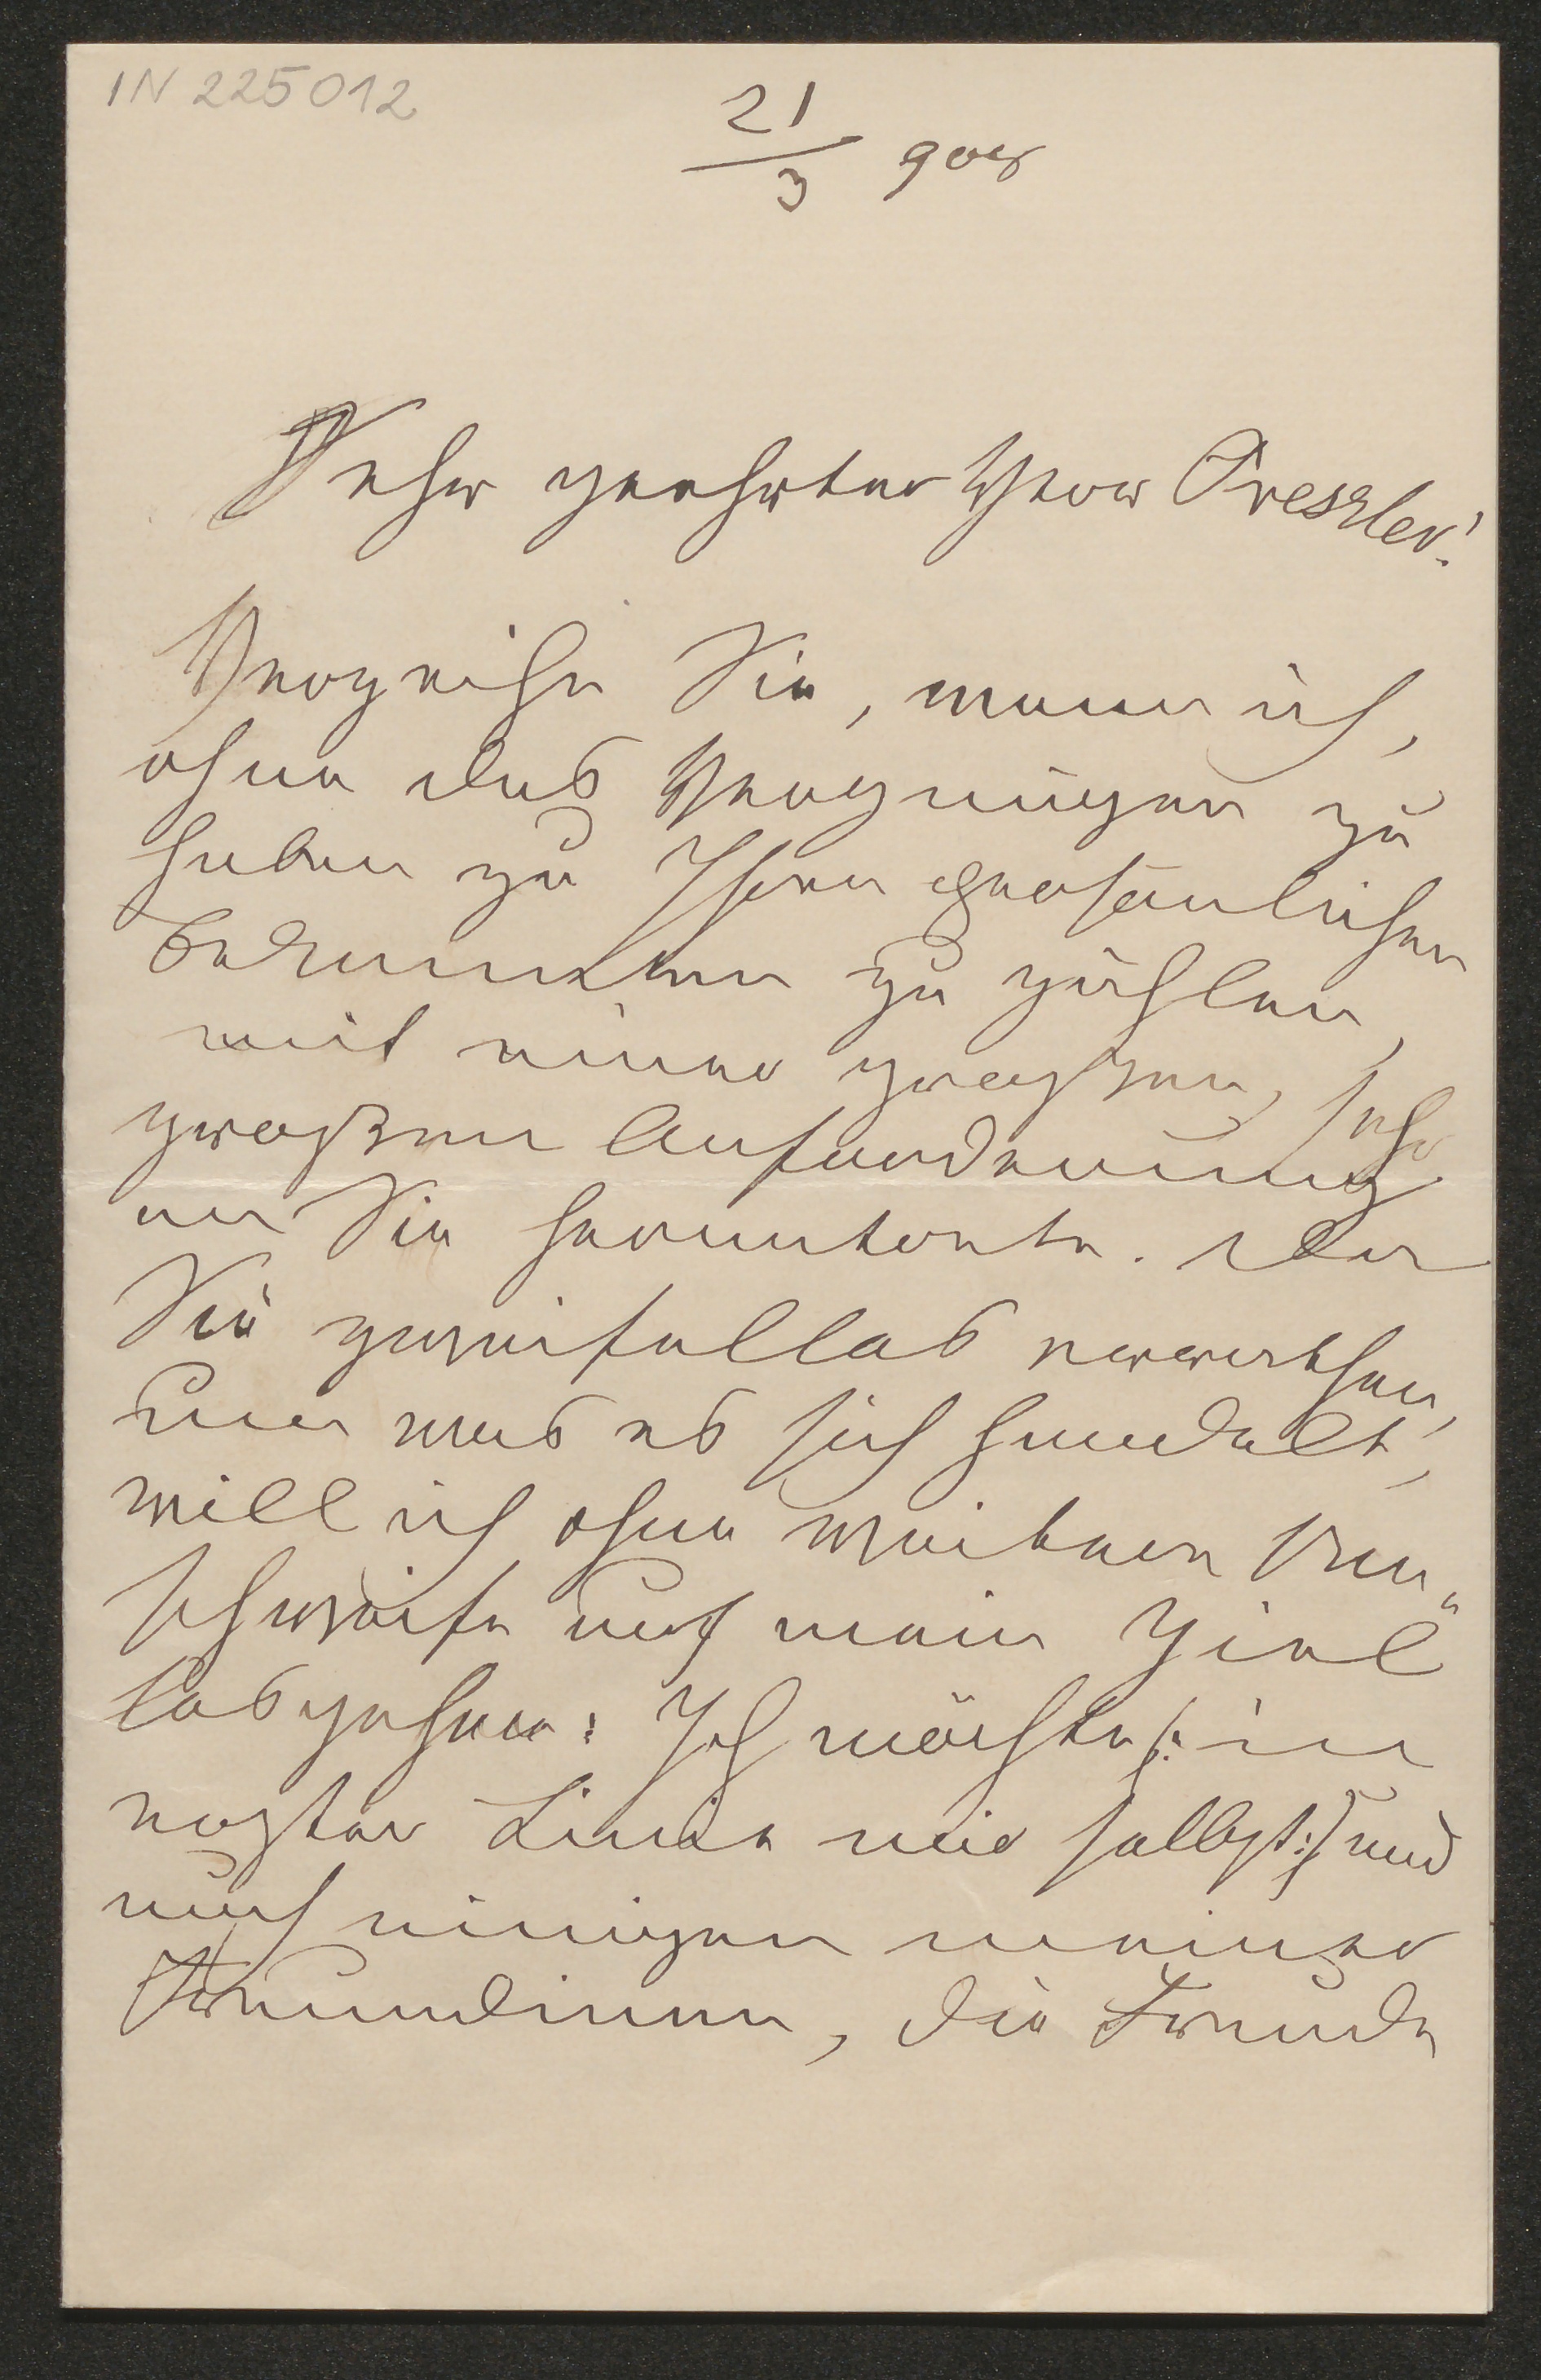 IN 225012
21/3 908
Sehr geehrter Herr Dreszler!
Verzeihn Sie, wenn ich,
ohne das Vergnügen zu
haben zu Ihren persönlichen
Bekannten zu zählen,
mit einer groszen, sehr
groszen Anforderung
an Sie herantrete. Den
Sie zweifellos
um was es sich handelt,
will ich ohne weitern Um„
schweife auf mein Ziel
losgehen: Ich möchte /: in
erster Linie mir selbst :/ und
auch einigen meiner
Freundinnen, die Freude